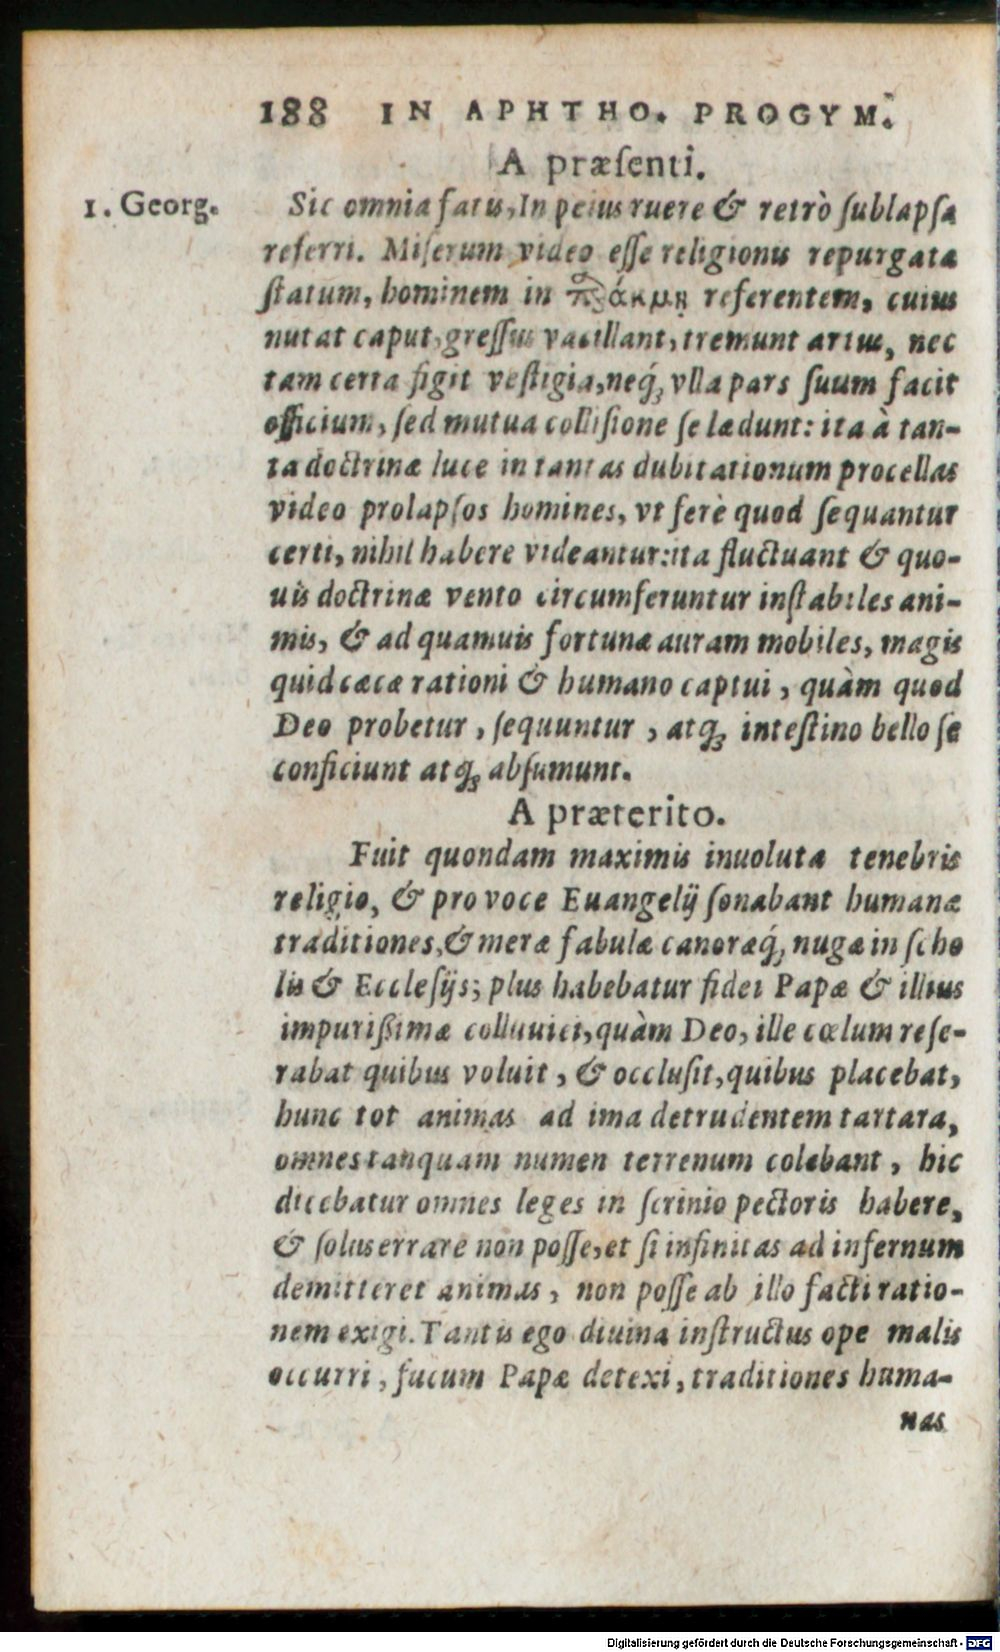 188 IN APHTHO. PROGYM.
A præſenti.
1. Georg.
Sic omnia fatis, In peius ruere & retrò ſublapſa
referri. Miſerum video eſſe religionis repurgata
ſtatum, hominem in παράκμῃ referentem, cuius
nutat caput, greſſus vacillant, tremunt artus, nec
tam certa figit veſtigia, neq́; vlla pars ſuum facit
officium, ſed mutua colliſione ſe lædunt: ita à tan-
ta doctrinæ luce in tantas dubitationum procellas
video prolapſos homines, vt ferè quod ſequantur
certi, nihil habere videantur: ita fluctuant & quo-
uis doctrinæ vento circumferuntur inſtabiles ani-
mis, & ad quamuis fortunæ auram mobiles, magis
quid cæcæ rationi & humano captui, quàm quod
Deo probetur, ſequuntur, atq; inteſtino bello ſe
conficiunt atq; abſumunt.
A præterito.
Fuit quondam maximis inuoluta tenebris
religio, & pro voce Euangelij ſonabant humanæ
traditiones, & meræ fabulæ canoræq́; nugæ in ſcho
lis & Eccleſijs; plus habebatur fidei Papæ & illius
impurißimæ colluuiei, quàm Deo, ille cœlum reſe-
rabat quibus voluit, & occluſit, quibus placebat,
hunc tot animas ad ima detrudentem tartara,
omnes tanquam numen terrenum colebant, hic
dicebatur omnes leges in ſcrinio pectoris habere,
& ſolus errare non poſſe, et ſi infinitas ad infernum
demitteret animas, non poſſe ab illo facti ratio-
nem exigi. Tantis ego diuina inſtructus ope malis
occurri, fucum Papæ detexi, traditiones huma-
nas
Digitalisierung gefördert durch die Deutsche Forschungsgemeinschaft - DFG